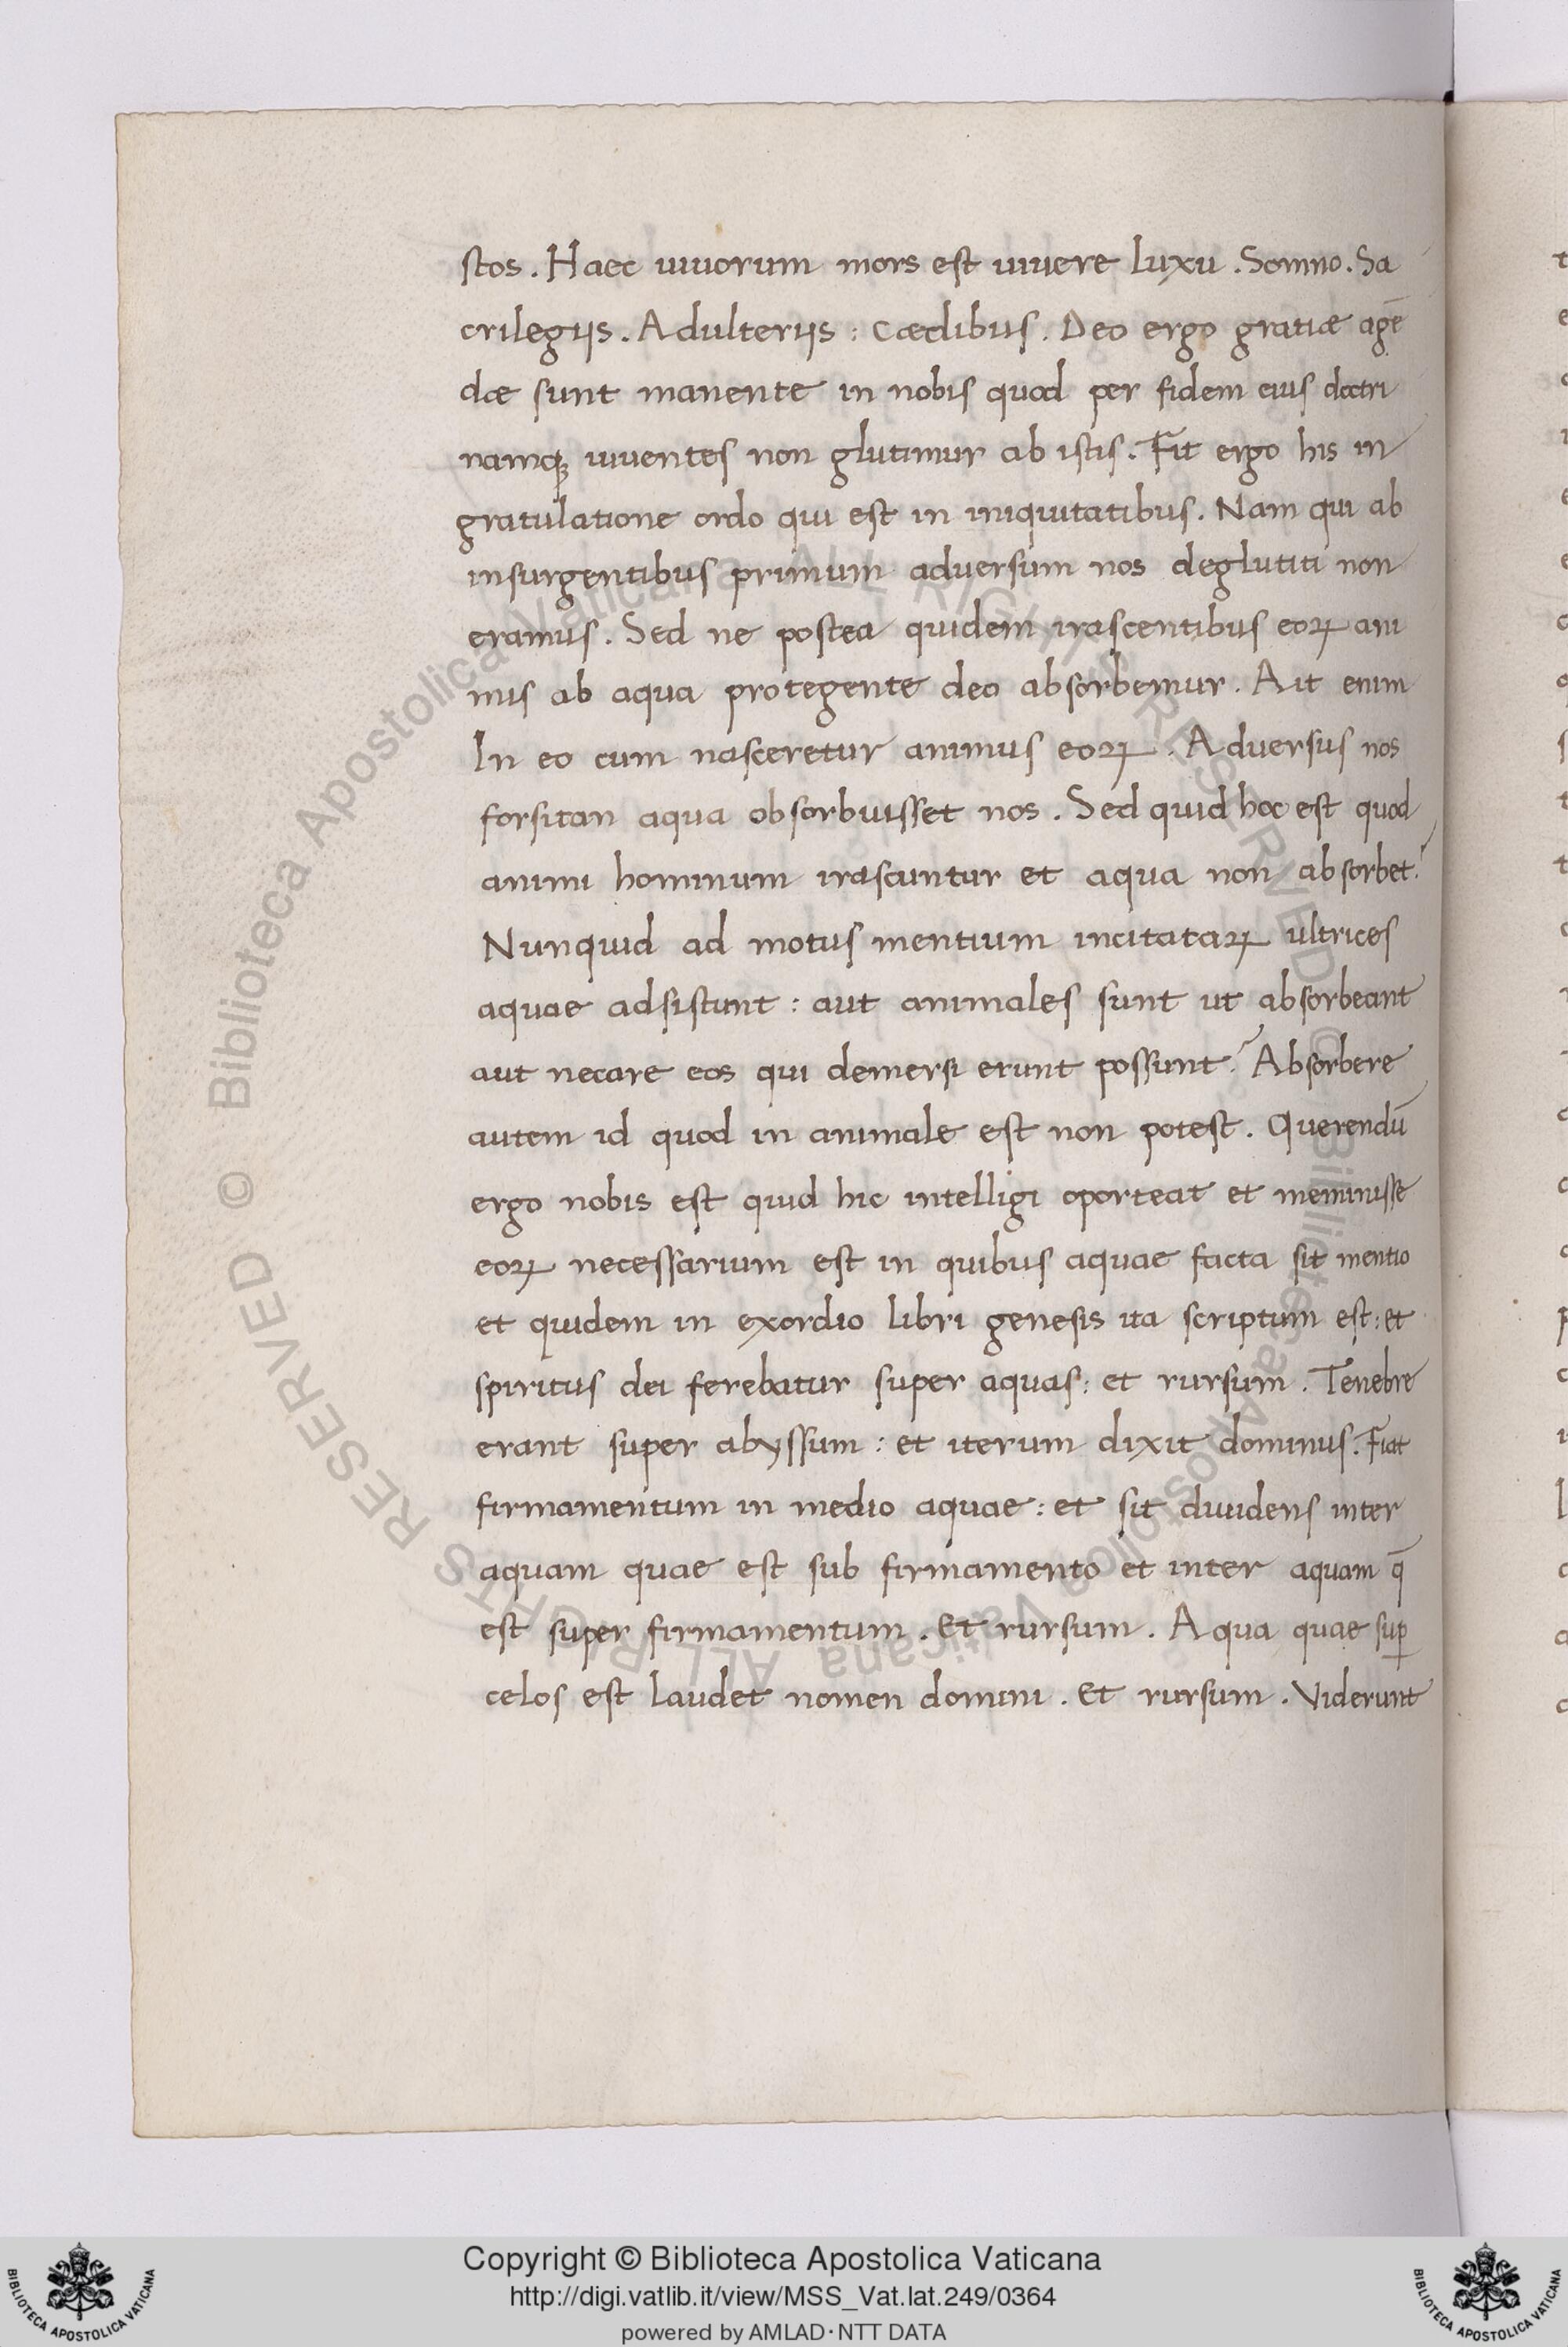 stos. Haec uiuorum mors est uiuere luxu. Somno. Sa
crilegiis. Adulteriis: Cædibus. Deo ergo gratiæ agē
dæ sunt manente in nobis quod per fidem eius doctri
namqꝫ uiuentes non glutimur ab istis. Fit ergo his in
gratulatione ordo qui est in iniquitatibus. Nam qui ab
insurgentibus primum adversum nos deglutiti non
eramus. Sed ne postea quidem irascentibus eoꝝ ani
mis ab aqua protegente deo absorbemur. Ait enim
In eo cum nasceretur animus eoꝝ. Adversus nos
forsitan aqua obsorbuisset nos. Sed quid hoc est quod
animi hominum irascuntur et aqua non absorbet?
Nunquid ad motus mentium incitataꝝ ultrices
aquae adsistunt: aut animales sunt ut absorbeant
aut necare eos qui demersi erunt possunt? Absorbere
autem id quod in animale est non potest. Querendū
ergo nobis est quid hic intelligi oporteat et meminisse
eoꝝ necessarium est in quibus aquae facta sit mentio
et quidem in exordio libri genesis ita scriptum est: et
spiritus dei ferebatur super aquas: et rursum. Tenebre
erant super abyssum: et iterum dixit dominus. Fiat
firmamentum in medio aquae: et sit diuidens inter
aquam quae est sub firmamento et inter aquam q̄
est super firmamentum. Et rursum. Aqua quae suꝑ
celos est laudet nomen domini. Et rursum. Viderunt
© Biblioteca Apostolica Vaticana ALL RIGHTS RESERVED
© Biblioteca Apostolica Vaticana ALL RIGHTS RESERVED
Copyright © Biblioteca Apostolica Vaticana
http://digi.vatlib.it/view/MSS_Vat.lat.249/0364
powered by AMLAD·NTT DATA
BIBLIOTECA APOSTOLICA VATICANA
BIBLIOTECA APOSTOLICA VATICANA